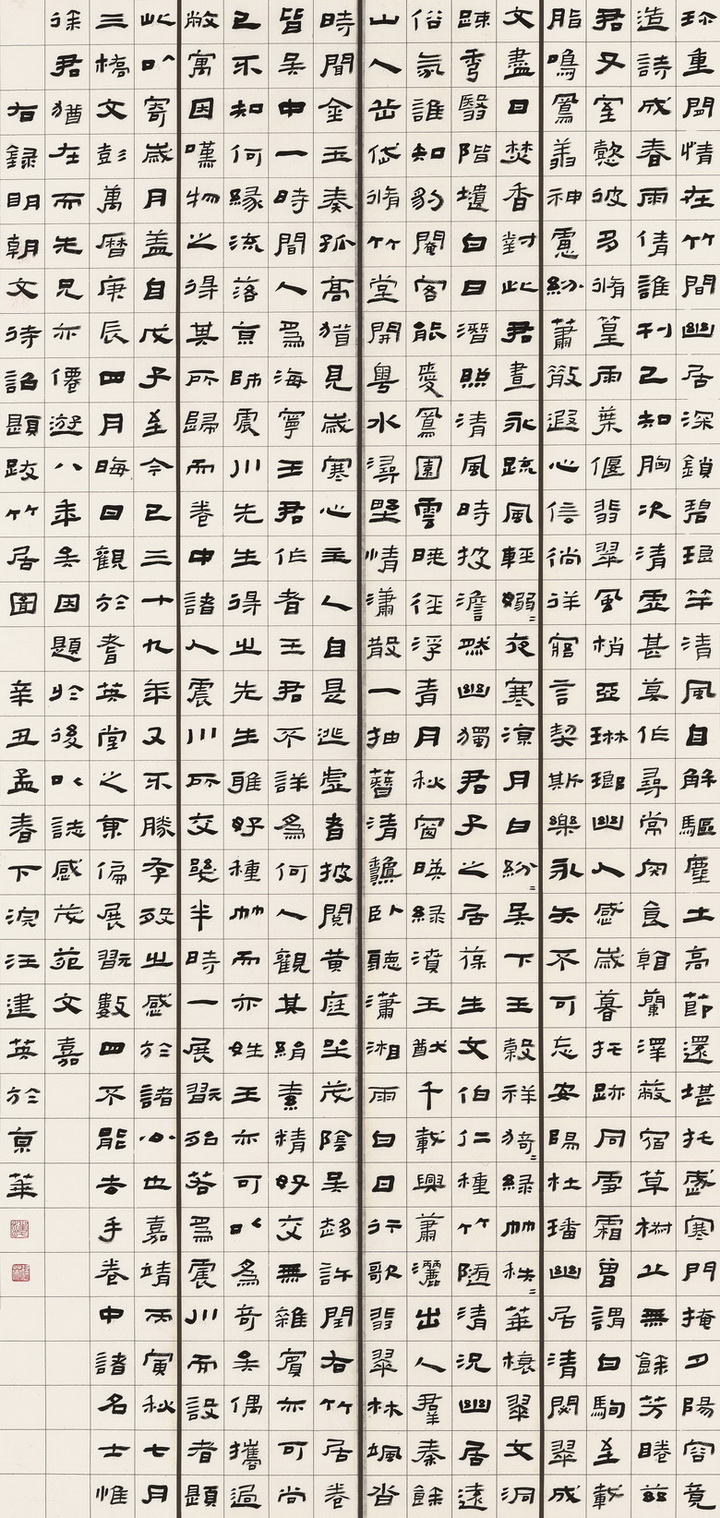 珍重閒情在竹間幽居深鎖碧琅玕清風自解驅塵土高節還堪托歲寒門掩夕陽容竟
造詩成春雨倩誰刊已知胸次清虛甚莫作尋常肉食看蘭澤蔽宿草樹上無餘芳睠茲
君又室憩彼多脩篁雨葉偃翡翠風梢亞琳瑯幽人感歲暮托跡同雪霜曾謂白駒至載
脂鳴鳳養神慮紛蕭散遐心信徜徉寤言契斯樂永矢不可忘安陽杜璠幽居清閟翠成
文盡日焚香對此君晝永疏風輕嫋=夜寒涼月白紛=吳下王穀祥猗=綠竹秩=華榱翠文洞
疎雩翳階壝白日潛照清風時披澹然幽獨君子之居葆生文伯仁種竹隨清況幽居遠
俗氛誰知豹閹客能愛鳳園雲暎徑浮青月秋窗暎綠濆王猷千載興蕭灑出人羣秦餘
山人岳岱脩竹堂開粵水潯野情瀟散一抽簪清齋臥聽瀟湘雨白日行歌翡翠林颯沓
時聞金玉奏孤高猶見歲寒心主人自是逃虛者披閱黃庭坐茂陰吳趨許閏右竹居卷
皆吳中一時聞人為海寧王君作者王君不詳為何人觀其絹素精好交無雜賓亦可尚
已不知何緣流落京師震川先生得之先生雅好種竹而亦姓王亦可以為奇矣偶攜過
敝寓因嘆物之得其所歸而卷中諸人震川所交幾半時一展翫殆若為震川而設者題
此以寄歲月蓋自戊子至今已三十九年又不勝存歿之感於諸公也嘉靖丙寅秋七月
三橋文彭萬曆庚辰四月晦日觀於耆英堂之東偏展翫數四不能去手卷中諸名士惟
徐君猶在而先兄亦僊遊八年矣因題於後以誌感茂苑文嘉
右錄明朝文待詔題跋竹居圖辛丑孟春下浣汪建英於京華